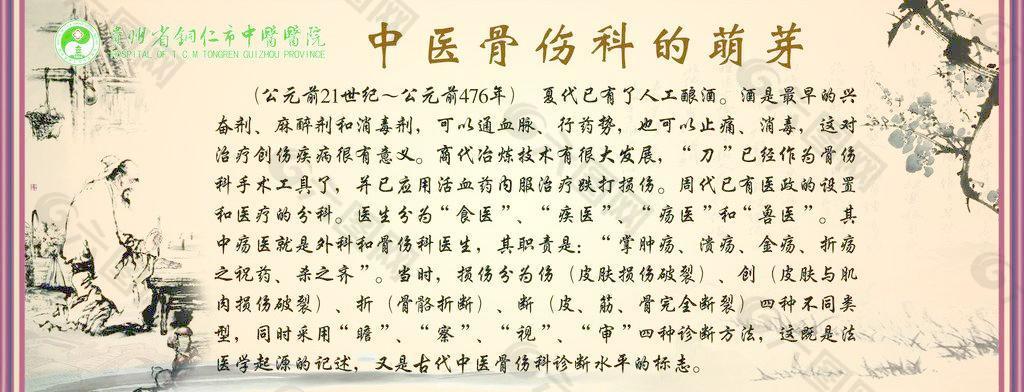 贵州省铜仁市中醫醫院
HOSPITAL OF T.C.M TONGREN GUIZHOU PROVINCE
中医骨伤科的萌芽
（公元前21世纪～公元前476年） 夏代已有了人工酿酒。酒是最早的兴
奋剂、麻醉剂和消毒剂，可以通血脉、行药势，也可以止痛、消毒，这对
治疗创伤疾病很有意义。商代冶炼技术有很大发展，“刀”已经作为骨伤
科手术工具了，并已应用活血药内服治疗跌打损伤。周代已有医政的设置
和医疗的分科。医生分为“食医”、“疾医”、“疡医”和“兽医”。其
中疡医就是外科和骨伤科医生，其职责是：“掌肿疡、溃疡、金疡、折疡
之祝药、杀之齐”。当时，损伤分为伤（皮肤损伤破裂）、创（皮肤与肌
肉损伤破裂）、折（骨骼折断）、断（皮、筋、骨完全断裂）四种不同类
型，同时采用“瞻”、“察”、“视”、“审”四种诊断方法，这既是法
医学起源的记述，又是古代中医骨伤科诊断水平的标志。